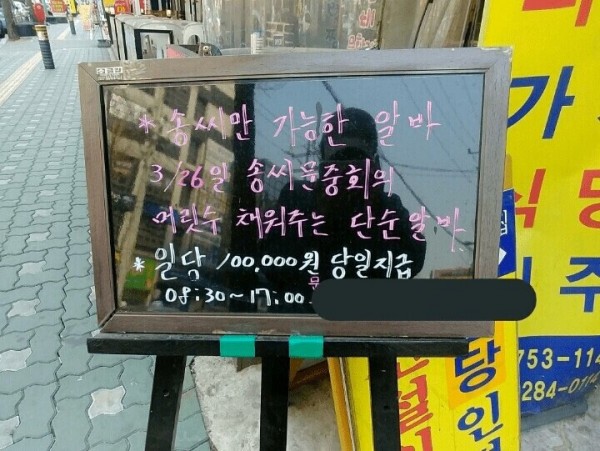 * 송씨만 가능한 알바
3/26일 송씨문중회의
머릿수 채워주는 단순알바
* 일당 100,000원 당일지급
08:30~17:00 문
가
식당
주
753-114
284-0114
당인